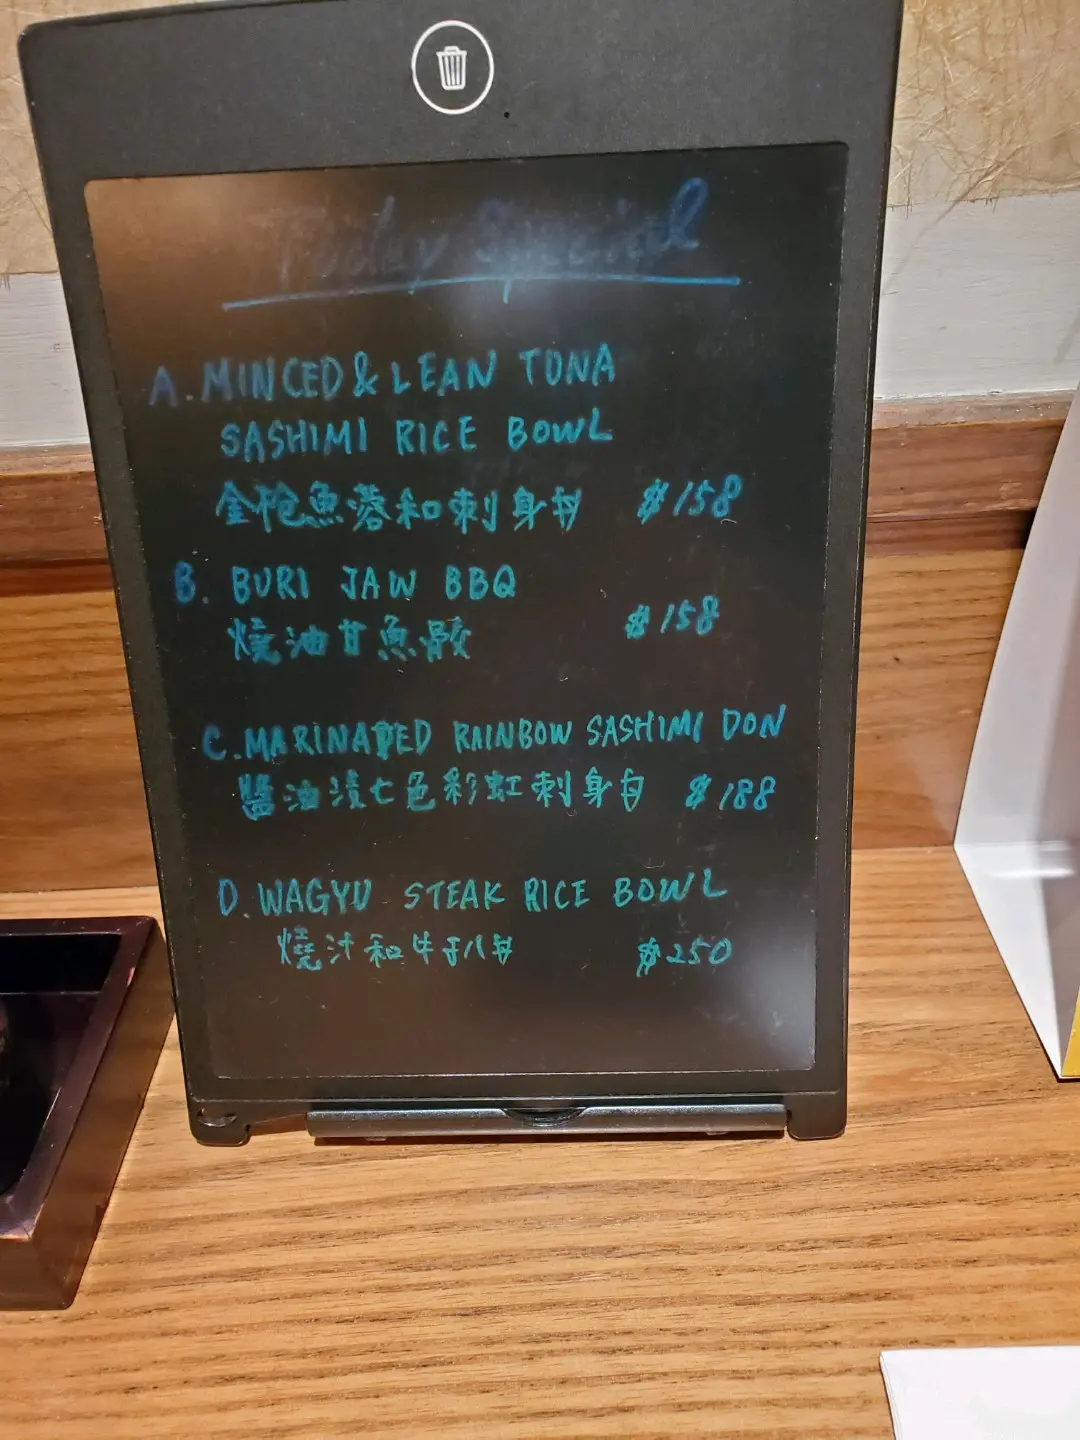 Today Special
A. MINCED & LEAN TUNA
SASHIMI RICE BOWL
金枪魚蓉和刺身丼 $158
B. BURI JAW BBQ
燒油甘魚骹 $158
C. MARINATED RAINBOW SASHIMI DON
醬油漬七色彩虹刺身丼 $188
D. WAGYU STEAK RICE BOWL
燒汁和牛扒丼 $250